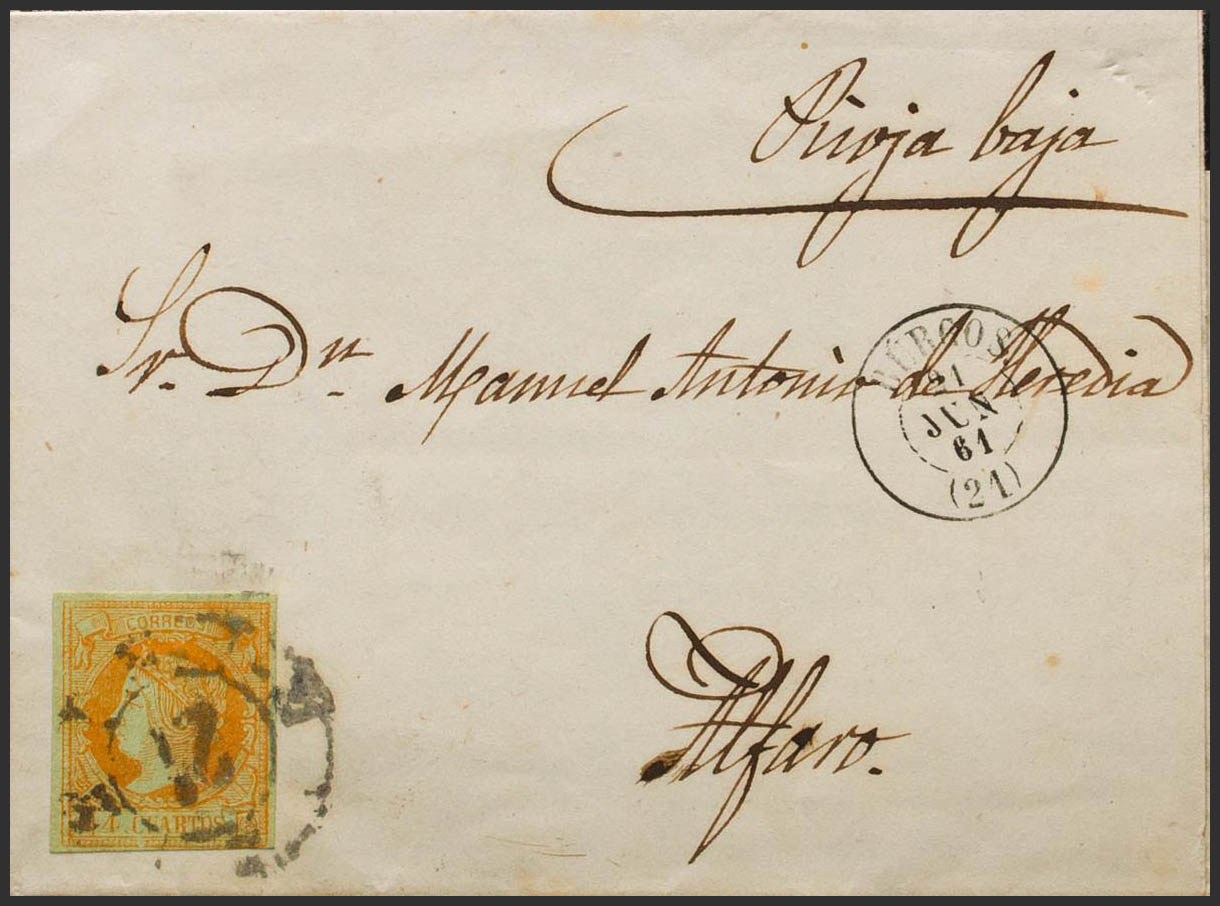 Rioja baja
Sr. Dn. Manuel Antonio de Heredia
BÚRGOS
21
JUN
61
(21)
Alfaro.
CORREOS
4 CUARTOS